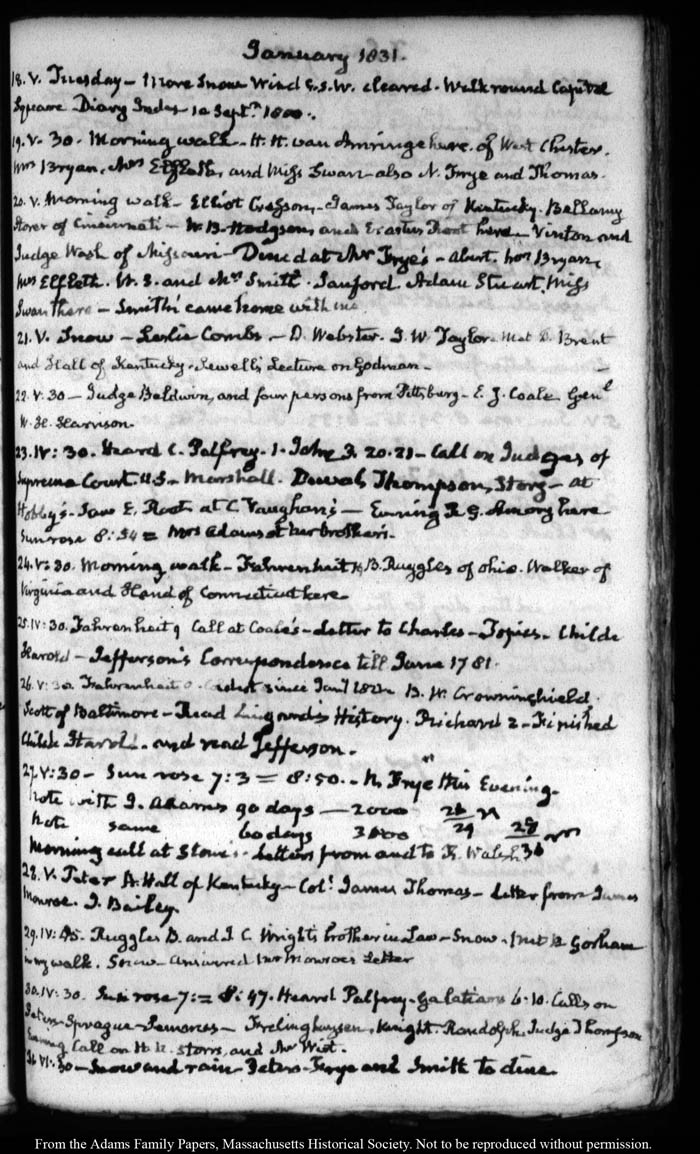 January 1831.
18. V. Tuesday – More Snow Wind S.S.W. cleared. Walk round Capitol
Square Diary Index to Septr 1800.
19. V. 30. Morning walk. H. H. van Amringe here. of West Chester.
Mrs Bryan, Mrs and Miss Swan also N. Frye and Thomas.
20. V. Morning walk – Elliot Cresson, James Taylor of Kentucky. Bellamy
Storer of Cincinnati – W. B. Hodgson, and Erastus Root here – Vinton and
Judge Wash of Missouri – Dined at Mr Frye's – Abert. Mrs Bryan,
Mrs W. S. and Mrs Smith. Sanford. Adam Stuart, Miss
Swan there – Smith came home with me
21. V. Snow – Leslie Combs. – D. Webster. J. W. Taylor. Met D. Brent
and Hall of Kentucky. Sewell's Lecture on Godman –
22. V: 30 – Judge Baldwin, and four persons from Pittsburg – E. J. Coale Genl
W. H. Harrison.
23. IV: 30. Heard C. Palfrey. 1. John 3. 20. 21 – Call on Judges of
Supreme Court. U.S. – Marshall. Duval, Thompson, Story – at
Saw E. Root at C Vaughan's – Evening R. G. Amory here
Sun rose 8: 54 = Mrs Adams at her brother's.
24. V: 30. Morning walk – Fahrenheit B. Ruggles of Ohio. Walker of
Virginia and Hand of Connecticut here –
25. IV: 30. Fahrenheit 9 Call at Coale's – Letter to Charles – Topics – Childe
Harold – Jefferson's Correspondence till June 1781.
26. V: 30 Fahrenheit 0. coldest since Jany B. W. Crowninshield.
Scott of Baltimore – Read Lingard's History. Richard 2 – Finished
Childe Harold. and read Jefferson. –
27. V: 30 – Sun rose 7: 3 = 8: 50. – N. Frye this Evening.
Note with J. Adams 90 days — 2000
Note same 60 days 3000
Morning call at Letters from and to R. Walsh
28. V. Peter A. Hall of Kentucky – Coll James Thomas – Letter from James
Monroe. J. Bailey.
29. IV: 45. Ruggles B. and J. C. Wright's brother in Law – Snow. Met B. Gorham
in my walk. Snow – answered Mr Monroe's Letter
30. IV: 30. Sun rose 7: = 8: 47. Heard Palfrey. Galatians 6: 10. Calls on
Peters – Sprague – – Frelinghuysen, Knight. Randolph, Judge Thompson
Evening Call on H. R. Storrs, and Mr West.
31. VI: 30 – Snow and rain – Peters – Frye and Smith to dine
From the Adams Family Papers, Massachusetts Historical Society. Not to be reproduced without permission.